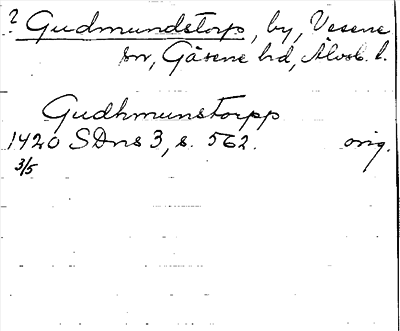 ? Gudmundstorp, by, Vesene
sn, Gäsene hd, Älvsb. l.
Gudhmunstorpp
1420 SDns 3, s. 562. orig.
3/5